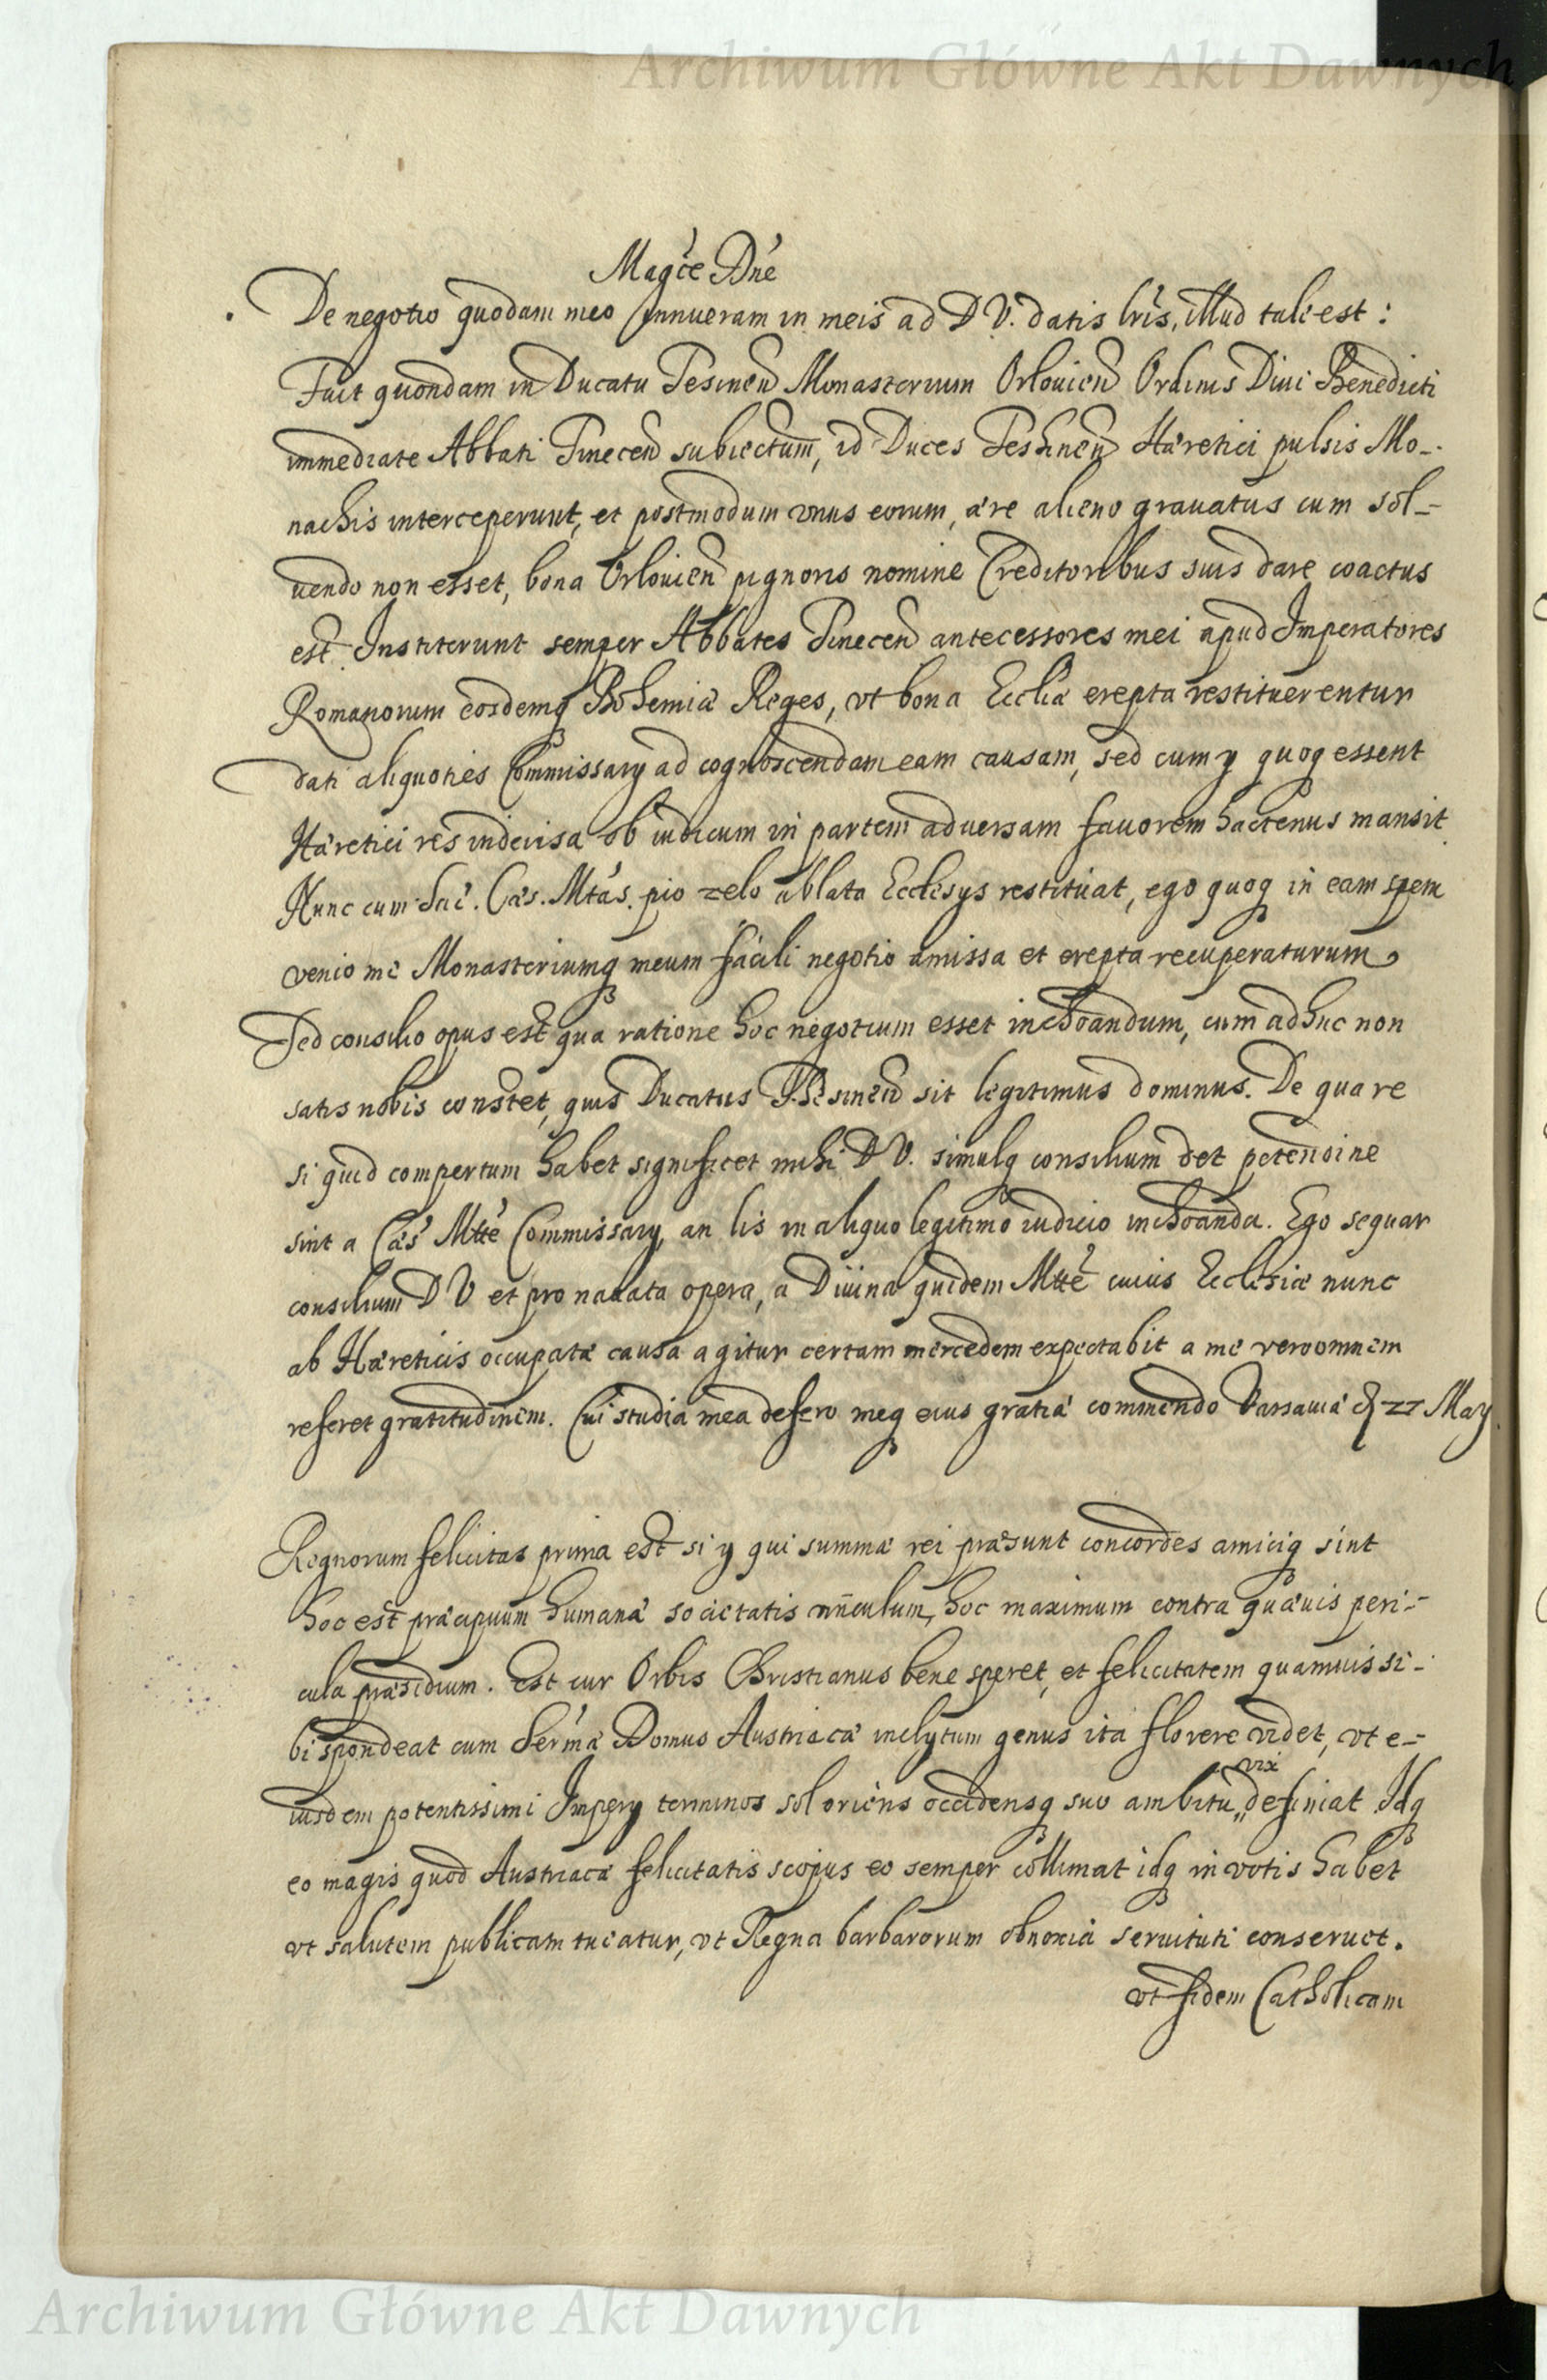 Archiwum Główne Akt Dawnych
Magc̃e Dñe
De negotio quodam meo innueram in meis ad D V. datis lris, illud tale est:
Fuit quondam in Ducatu Tesinen Monasterium Orlouien Ordinis Diui Benedicti
immediate Abbati Tinecen subiectum, id Duces Teshinen Hæretici pulsis Mo-
nachis interceperunt, et postmodum vnus eorum, ære alieno grauatus cum sol-
uendo non esset, bona Orlouien pignoris nomine Creditoribus suis dare coactus
est. Institerunt semper Abbates Tinecen antecessores mei apud Imperatores
Romanorum eosdemq Bohemiæ Reges, vt bona Eccliæ erepta restituerentur
dati aliquoties Commissary ad cognoscendam eam causam, sed cum y quoq essent
Hæretici res indecisa ob iudicum in partem aduersam fauorem hactenus mansit.
Nunc cum Sac. Cæs. Mtas. pio zelo ablata Ecclesys restituat, ego quoq in eam spem
venio me Monasteriumq meum facili negotio amissa et erepta recuperaturum
Sed consilio opus est qua ratione hoc negotium esset inchoandum, cum adhuc non
satis nobis constet, quis Ducatus Thesinen sit legitimus dominus. De qua re
si quid compertum habet significet mihi D V. simulq consilium det petendine
sint a Cæs Mtte Commissary, an lis in aliquo legitimo iudicio inchoanda. Ego sequar
consilium D V et pro nauata opera, a Diuina quidem Mtte cuius Ecclesiæ nunc
ab Hæreticis occupatæ causa agitur certam mercedem expectabit a me vero omnem
referet gratitudinem. Cui studia mea defero meq eius gratiæ commendo Varsauiæ d 27 May
Regnorum felicitas prima est si y qui summæ rei præsunt concordes amiciq sint
hoc est præcipuum humanæ societatis vinculum, hoc maximum contra quæuis peri-
cula præsidium. Est cur Orbis Christianus bene speret, et felicitatem quamuis si-
bi spondeat cum Sermæ Domus Austriacæ inclytum genus ita florere videt, vt e-
iusdem potentissimi Impery terminos sol oriens occidensq suo ambitu vix definiat Idq
eo magis quod Austriacæ felicitatis scopus eo semper collimat idq in votis habet
vt salutem publicam tueatur, vt Regna barbarorum obnoxia seruituti conseruet.
vt fidem Catholicam
Archiwum Główne Akt Dawnych